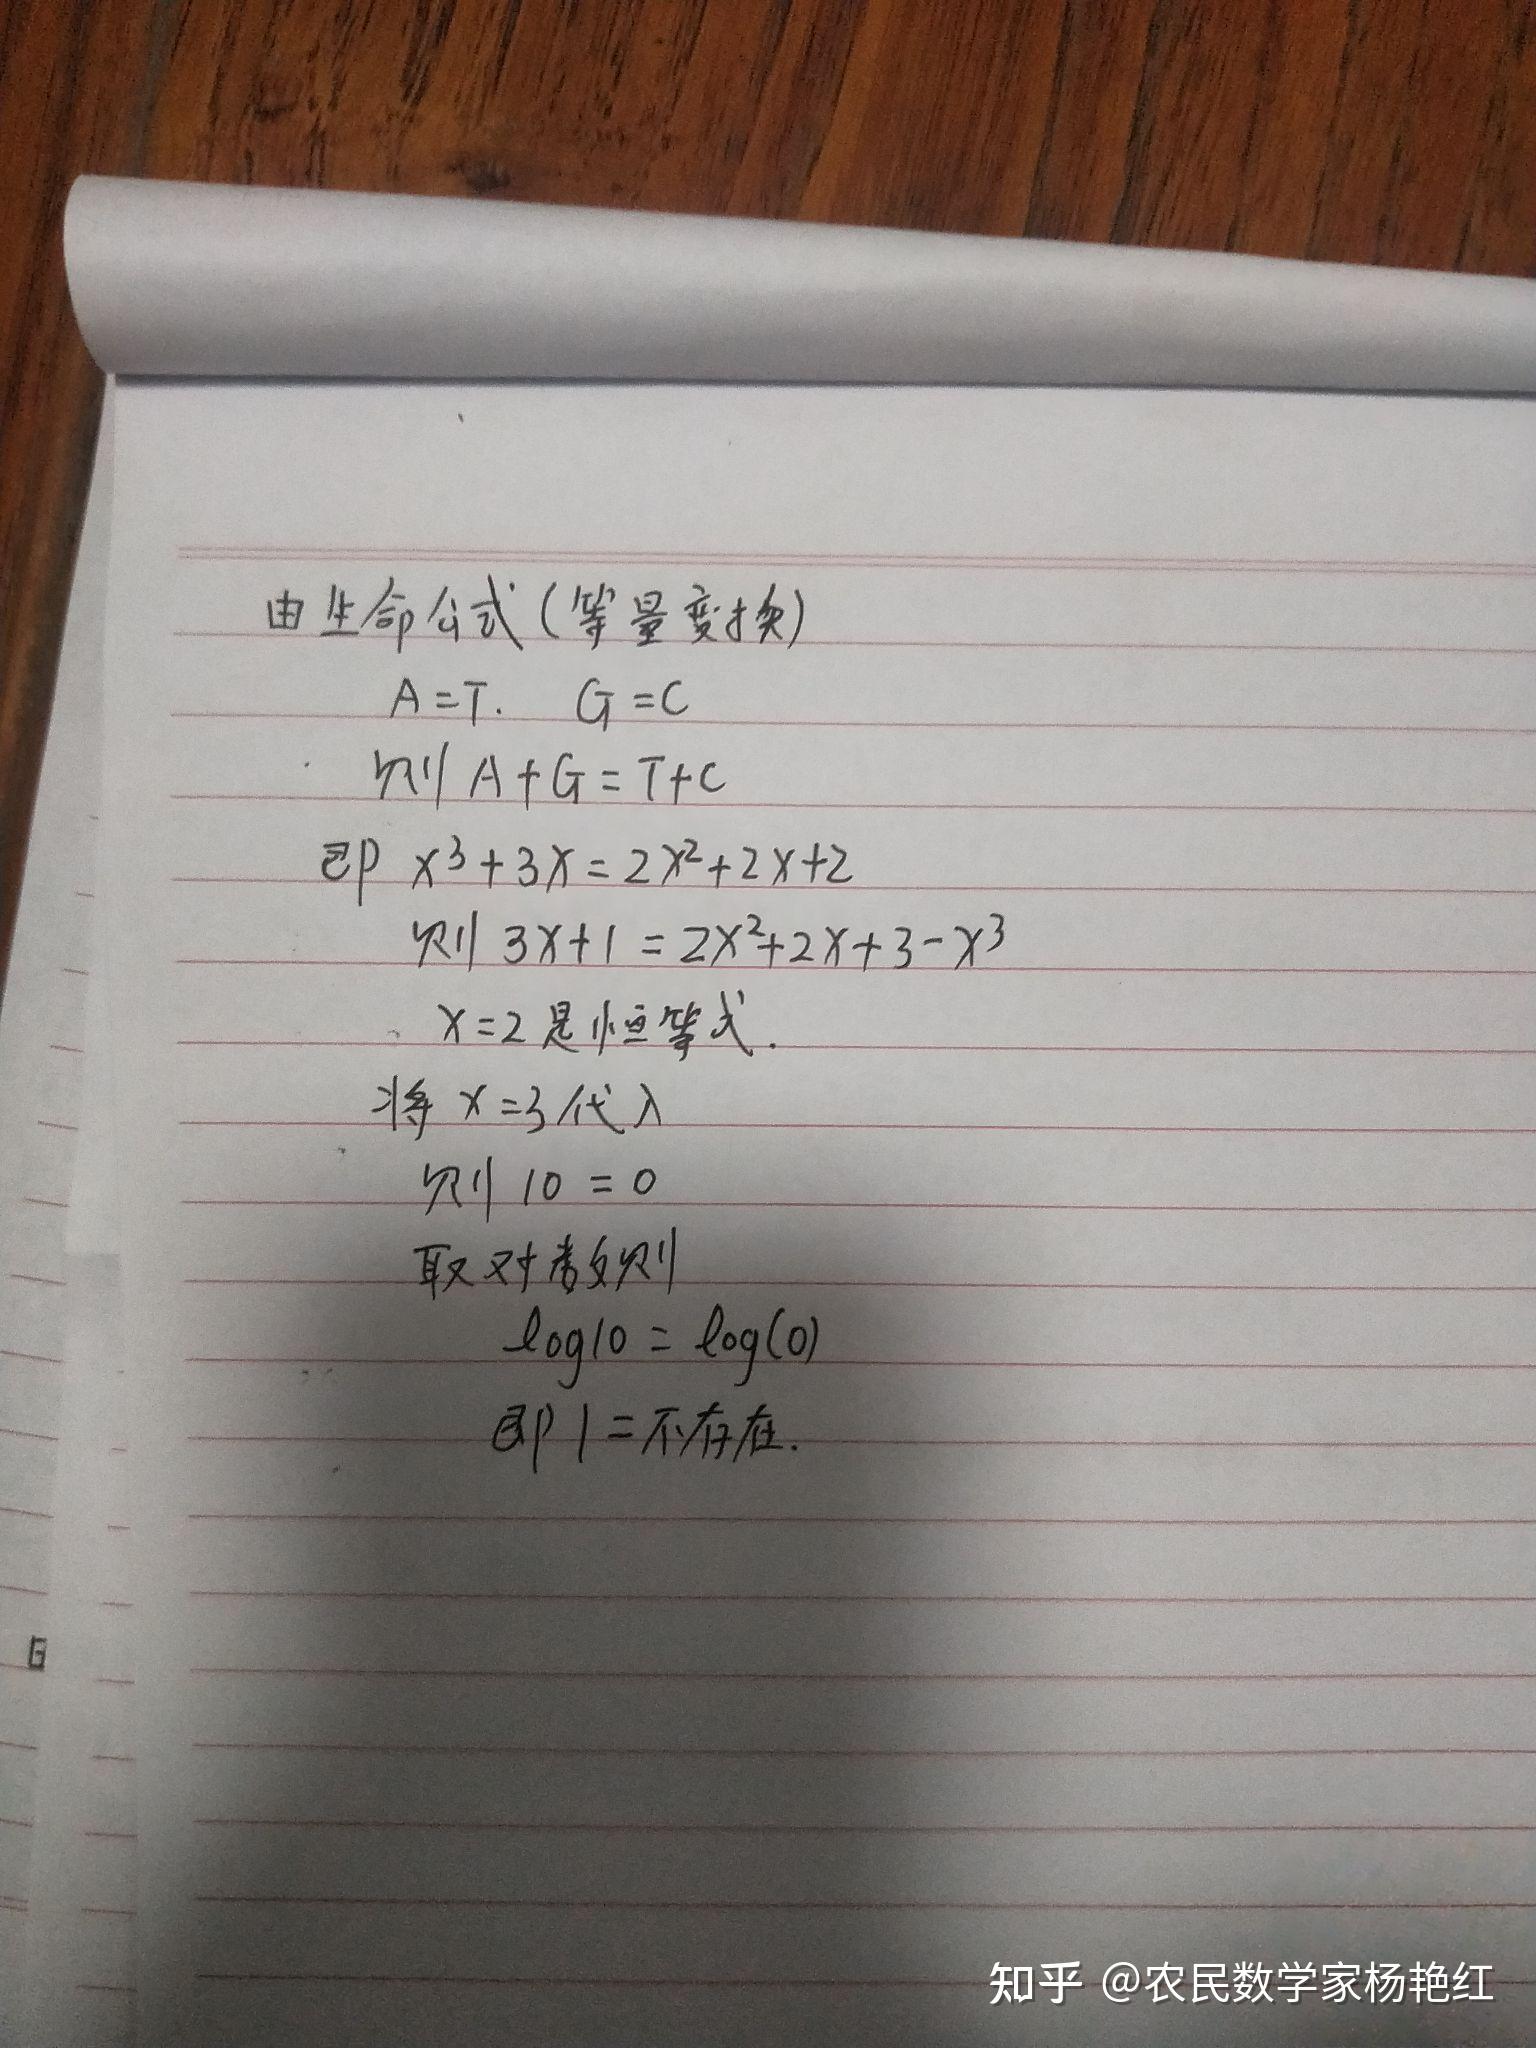 由生命公式(等量变换)
A=T. G=C
则 A+G=T+C
即 x³+3x=2x²+2x+2
则 3x+1=2x²+2x+3-x³
x=2是恒等式.
将 x=3代入
则 10=0
取对数则
log10=log(0)
即 1=不存在.
G
知乎 @农民数学家杨艳红